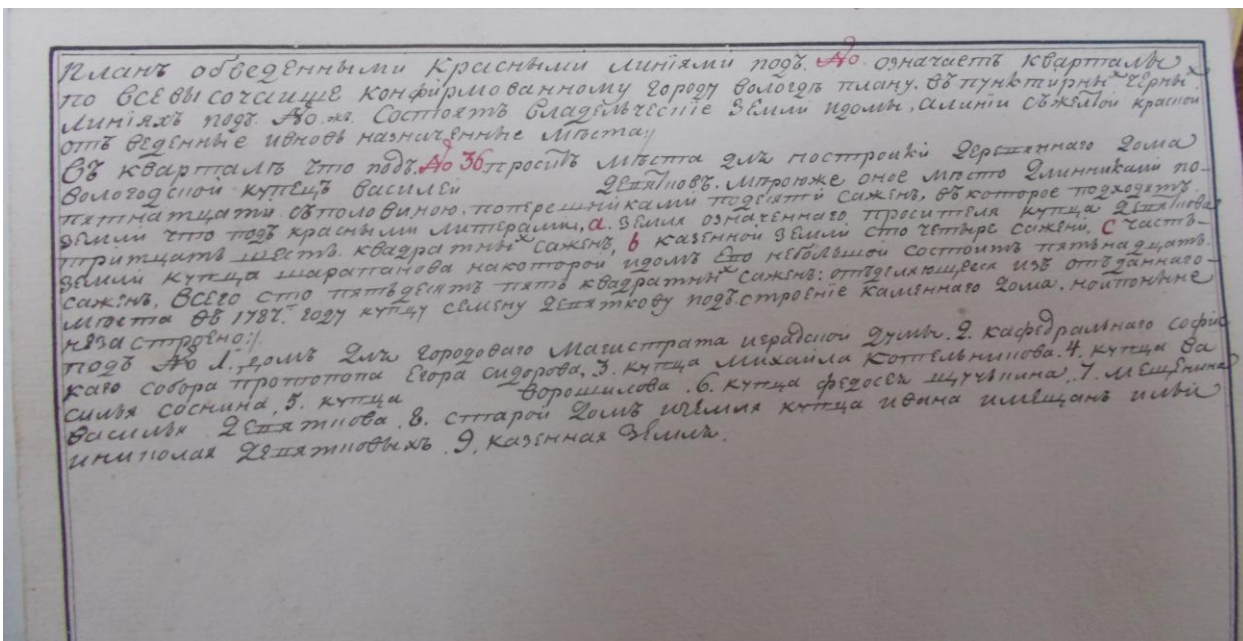 Планъ обведенными красными линіями подъ № означаетъ кварталы
по всевысочайше конфирмованному городу вологдѣ плану. въ пунктирныхъ черныхъ
линіяхъ подъ № Состоятъ владельческіе земли идомы, алиніи съжелтой красной
отъ веденные ивновь назначенные мѣста//
Въ кварталѣ что подъ № 36 проситъ мѣста для постройки деревяннаго дома
вологодской купецъ василей деветковъ. мѣроюже оное мѣсто длинниками по-
пятнатцати съполовиною, поперешниками подесяти саженъ, въкоторое подходятъ
земли что подъ красными литерами, а. земля означеннаго просителя купца
тритцать шесть квадратныхъ саженъ, b казенной земли сто четыре сажени, c часть-
земли купца шарапанова накоторой идомъ его небольшой состоитъ пятьнадцать
саженъ, всего сто пятьдесятъ пять квадратныхъ саженъ: отъделяющееся изъ отъданнаго-
мѣста въ 1787. году купцу семену подъстроеніе каменнаго дома, ноипонынѣ
незастроено:/
подъ № 1. домъ для городоваго магистрата играцкой думы. 2. кафедральнаго софій
скаго собора протопопа Егора сидорова, 3. купца михайла котельникова. 4. купца ва
силья соснина, 5. купца ворошилова. 6. купца федосея щучькина, 7. мещенина
василья 8. старой домъ иземля купца ивана имещанъ ильи
иниколая 9. казенная земля.